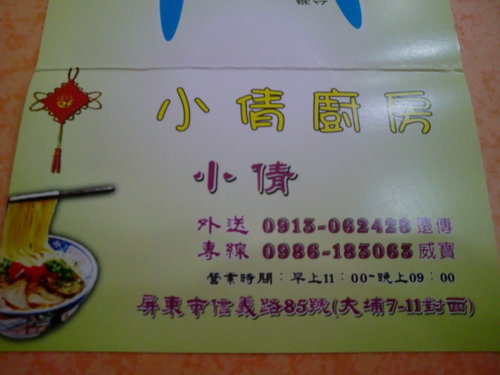 小倩廚房
小倩
外送 0913-062428 遠傳
專線 0986-183063 威寶
營業時間：早上11：00~晚上09：00
屏東市信義路85號(大埔7-11對面)